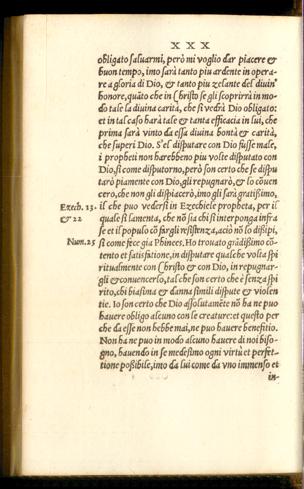 XXX
obligato saluarmi, però mi voglio dar piacere &
buon tempo, imo sarà tanto piu ardente in opera-
re a gloria di Dio, & tanto piu zelante del diuin'
honore, quāto che in Christo se gli scoprirrà in mo-
do tale la diuina carità, che si vedrà Dio obligato:
et in tal caso harà tale & tanta efficacia in lui, che
prima sarà vinto da essa diuina bontà & carità,
che superi Dio. S'el disputare con Dio fusse male,
i propheti non harebbeno piu volte disputato con
Dio, si come disputorno, però son certo che se dispu
tarò piamente con Dio, gli repugnarò, & lo cōuen
cerò, che non gli dispiacerò, imo gli sarà gratissimo,
Ezech. 13. il che puo vedersi in Ezechiele propheta, per il
& 22 quale si lamenta, che nō sia chi s'interponga infra
se et il populo cō fargli resistenza, aciò nō lo dissipi,
Num. 25 si come fece gia Phinees. Ho trouato grādissimo cō-
tento et satisfatione, in disputare qualche volta spi
ritualmente con Christo & con Dio, in repugnar-
gli & conuencerlo, tal che son certo che è senza spi
rito, chi biasima & danna simili dispute & violen
tie. Io son certo che Dio assolutamēte nō ha ne puo
hauere obligo alcuno con le creature: et questo per
che da esse non hebbe mai, ne puo hauere benefitio.
Non ha ne puo in modo alcuno hauere di noi biso-
gno, hauendo in se medesimo ogni virtù et perfet-
tione possibile, imo da lui come da vno immenso et
in-